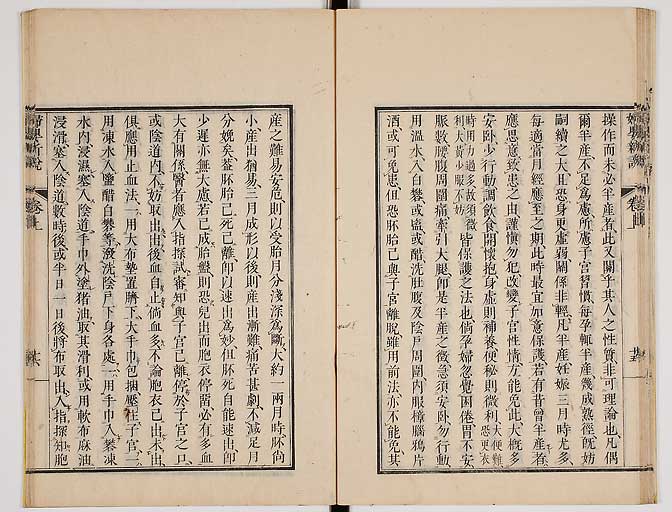 操作而未必半產者此又關乎其人之性質非可理論也凡偶
爾半產不足為慮所慮子宮習慣每孕輒半產幾成熟徑旣妨
嗣續之大且忠身更虛弱關係非輕凡半產妊娠三月時尤多
每適當月經應至之期此時最宜如意保護若有昔曾半產者
應思意致患之由謹慎勿犯改變子宮性情方能免此大槪多
安卧少行動調飲食開懷抱身虛則補養便秘則微利大便難恐更衣
時用力過多故須微利大黃少服不妨皆保護之法也倘孕婦忽覺困倦胃不安
脈數腰腹周圍痛牽引大腿卽是半產之徵急須安卧勿行動
用溫水入白礬或鹽或醋洗肚腹及陰戶周圍內服樟腦鴉片
酒或可免患但恐胚胎已與子宮離脫雖用前法亦不能免其
婦嬰新說
卷上
產之難易安危則以受胎月分淺深為斷大約一兩月時胚尙
小產出猶易三月成形以後則產出漸難痛苦甚劇不減足月
分娩矣蓋胚胎已死已離卽以速出為妙但胚死自能速出卽
少遲亦無大慮若已成胎盤則恐兒出而胞衣停畱必有多血
大有關係醫者應入指探試審知與子宮已離停於子宮之口
或陰道內不妨取出出後血自止倘血多不論胞衣已出未出
俱應用止血法一用大布墊置臍下大手巾包捆壓住子宮二
用凍水入鹽醋白礬等潑洗陰戶下身各處一用手巾入礬凍
水內浸濕塞入陰道手巾外塗猪油取其滑利或用軟布麻油
浸滑塞入陰道數時後或半日一日後將布取出入指探知胞
婦嬰新說
卷上